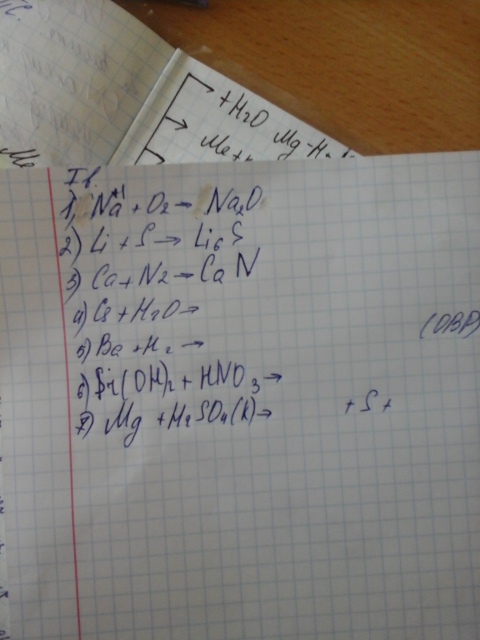 +H2O Mg
Me+
Ме
I в.
1) Na+1 + O2 → Na2O
2) Li + S → Li6S
3) Ca + N2 → CaN
4) Cs + H2O →
5) Ba + H2 →
(ОВР)
6) Sr(OH)2 + HNO3 →
7) Mg + H2SO4(k) → + S +